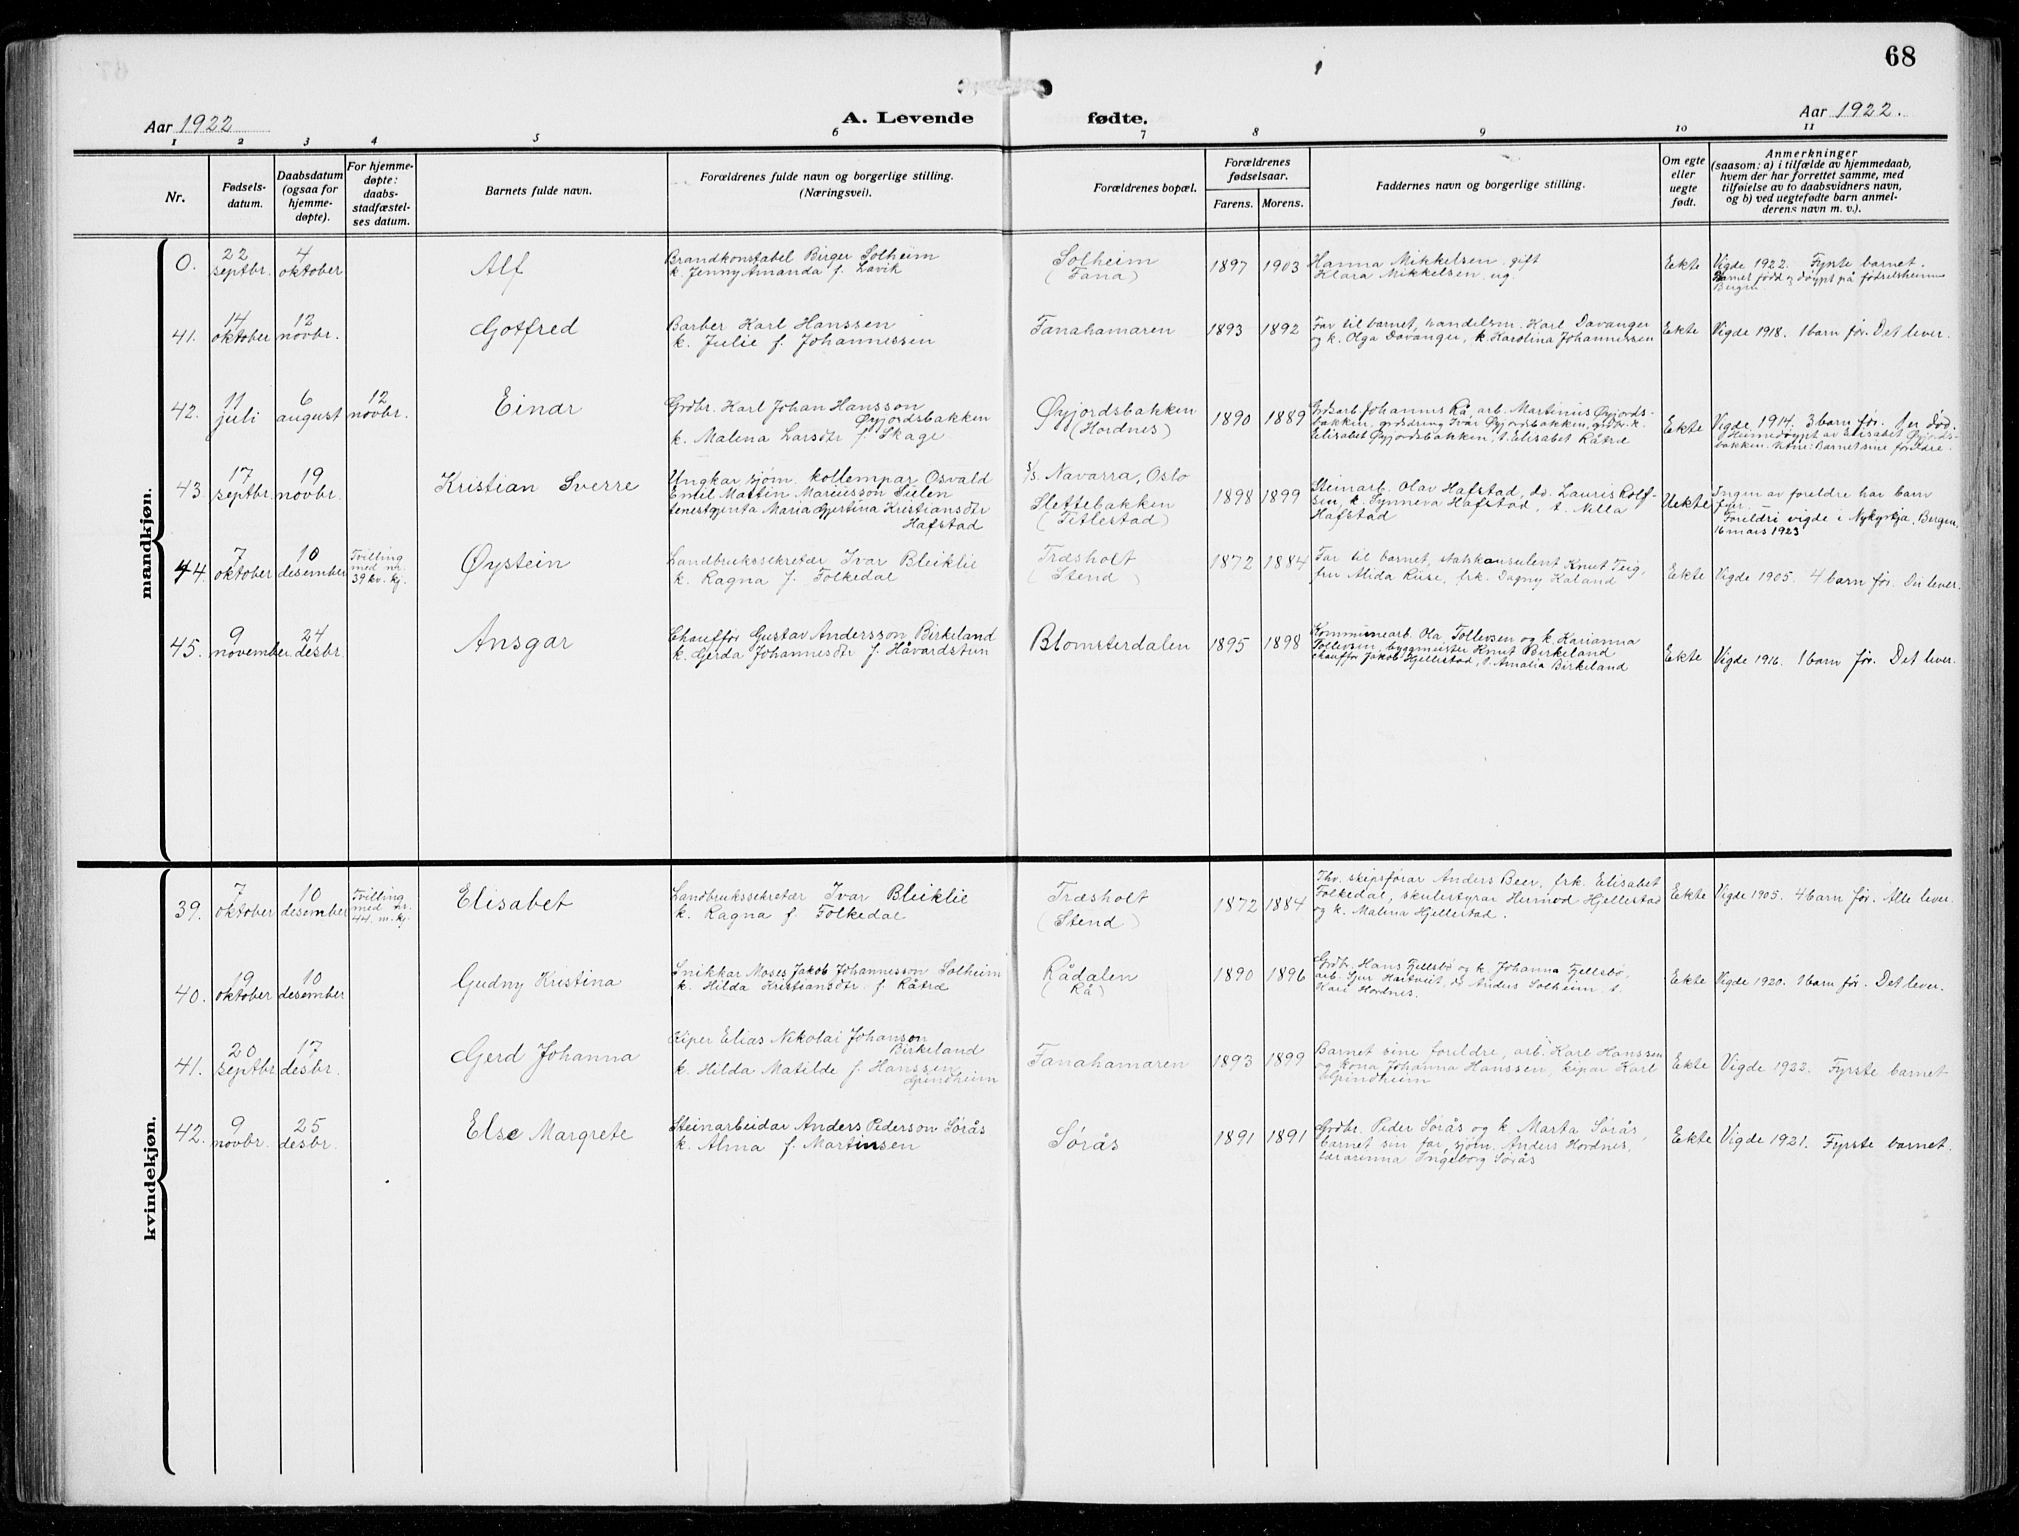 68
Aar 1922
A. Levende fødte.
Aar 1922.
1 2 3 4 5 6 7 8 9 10 11
Nr.
Fødsels-
datum.
Daabsdatum
(ogsaa for
hjemme-
døpte).
For hjemme-
døpte:
daabs-
stadfæstel-
ses datum.
Barnets fulde navn.
Forældrenes fulde navn og borgerlige stilling.
(Næringsvei).
Forældrenes bopæl.
Forældrenes
fødselsaar.
Farens. Morens.
Faddernes navn og borgerlige stilling.
Om egte
eller
uegte
født.
Anmerkninger
(saasom: a) i tilfælde av hjemmedaab,
hvem der har forrettet samme, med
tilføielse av to daabsvidners navn,
og b) ved uegtefødte barn anmel-
derens navn m. v.).
mandkjøn.
0.
22
septbr.
4
oktober
Alf
Brandkonstabel Birger Solheim
k. Jenny Amanda f. Lavik
Solheim
(Fana)
1897 1903
Hanna Mikkelsen, gift
Klara Mikkelsen, ug.
Eekte
Vigde 1922. Fyrste barnet.
Barnet født og døypt på fødselsheimen
Bergen
41.
14
oktober
12
novbr.
Gotfred
Barber Karl Hanssen
k. Julie f. Johannessen
Fanahamaren
1893 1892
Far til barnet, handelsm. Karl Davanger
og k. Olga Davanger, k. Karolina Johannessen
Ekte
Vigde 1918. 1 barn før. Det lever.
42.
11
juli
6
august
12
novbr.
Einar
Grdbr. Karl Johan Hansson
Øyjordsbakken
k. Malena Larsdtr f. Skage
Øyjordsbakken
(Hordnes)
1890 1889
Grdsarb. Johannes Rå, arb. Martinus Øyjords-
bakken, grdsdreng Ivar Øyjordsbakken, grdbr. k.
Elisabet Øyjordsbakken, t. Elisabet Råtre
Ekte
Vigde 1914. 3 barn før. 1 er død.
Heimedøypt av Elisabet Øyjords-
bakken. Vitne: Barnet sine foreldre.
43.
17
septbr.
19
novbr.
Kristian Sverre
Ungkar sjøm. kollempar Osvald
Emil Martin Mariusson Sulen
tenestgjenta Maria Gjertina Kristiansdtr
Hafstad
S/S Navarra, Oslo
Slettebakken
(Titlestad)
1898 1899
Steinarb. Olav Hafstad, do. Lauris Rolf-
sen, k. Synneva Hafstad, t. Nilla
Hafstad
Uekte
Ingen av foreldre har barn
fyrr.
Foreldri vigde i Nykyrkja, Bergen,
16 mars 1923
44.
7
oktober
10
desember
Tvilling
med nr.
39 kv. kj.
Øystein
Landbrukssekretær Ivar Bleiklie
k. Ragna f. Folkedal
Træsholt
(Stend)
1872 1884
Far til barnet, statskonsulent Knut Teig,
fru Alida Ruse, frk. Dagny Haland
Ekte
Vigde 1905. 4 barn før. Dei lever.
45.
9
november
24
desbr.
Ansgar
Chauffør Gustav Andersson Birkeland
k. Gerda Johannesdtr f. Håvardstun
Blomsterdalen
1895 1898
Kommunearb. Ola Tollevsen og k. Karianna
Tollevsen, byggmeister Knut Birkeland
chauffør Jakob Hjellestad, t. Amalia Birkeland
Ekte
Vigde 1916. 1 barn før. Det lever.
kvindekjøn.
39.
7
oktober
10
desember
Tvilling
med nr.
44. m. kj.
Elisabet
Landbrukssekretær Ivar Bleiklie
k. Ragna f. Folkedal
Træsholt
(Stend)
1872 1884
Thv. skipsførar Anders Beer, frk. Elisabet
Folkedal, skulestyrar Hermod Hjellestad
og k. Malena Hjellestad.
Ekte
Vigde 1905. 4 barn før. Alle lever.
40.
19
oktober
10
desember
Gudny Kristina
Snikkar Moses Jakob Johannesson Solheim
k. Hilda Kristiansdtr. f. Råtræ
Rådalen
(Rå)
1890 1896
Grdbr. Hans Fjellsbø og k. Johanna Fjellsbø,
arb. Sjur Hartveit, do Anders Solheim, t.
Kari Hordnes.
Ekte
Vigde 1920. 1 barn før. Det lever.
41.
20
septbr
17
desbr.
Gerd Johanna
Kiper Elias Nikolai Johanson
Birkeland
k. Hilda Matilde f. Hanssen
Spindheim
Fanahamaren
1893 1899
Barnet sine foreldre, arb. Karl Hanssen
og kona Johanna Hanssen, kipar Karl
Spindheim
Ekte
Vigde 1922. Fyrste barnet
42.
9
novbr.
25
desbr.
Else Margrete
Steinarbeidar Anders Pederson Sørås
k. Alma f. Martinsen
Sørås
1891 1891
Grdbr. Peder Sørås og k. Marta Sørås,
barnet sin far, sjøm. Anders Hordnes,
lærarinna Ingeborg Sørås
Ekte
Vigde 1921. Fyrste barnet.